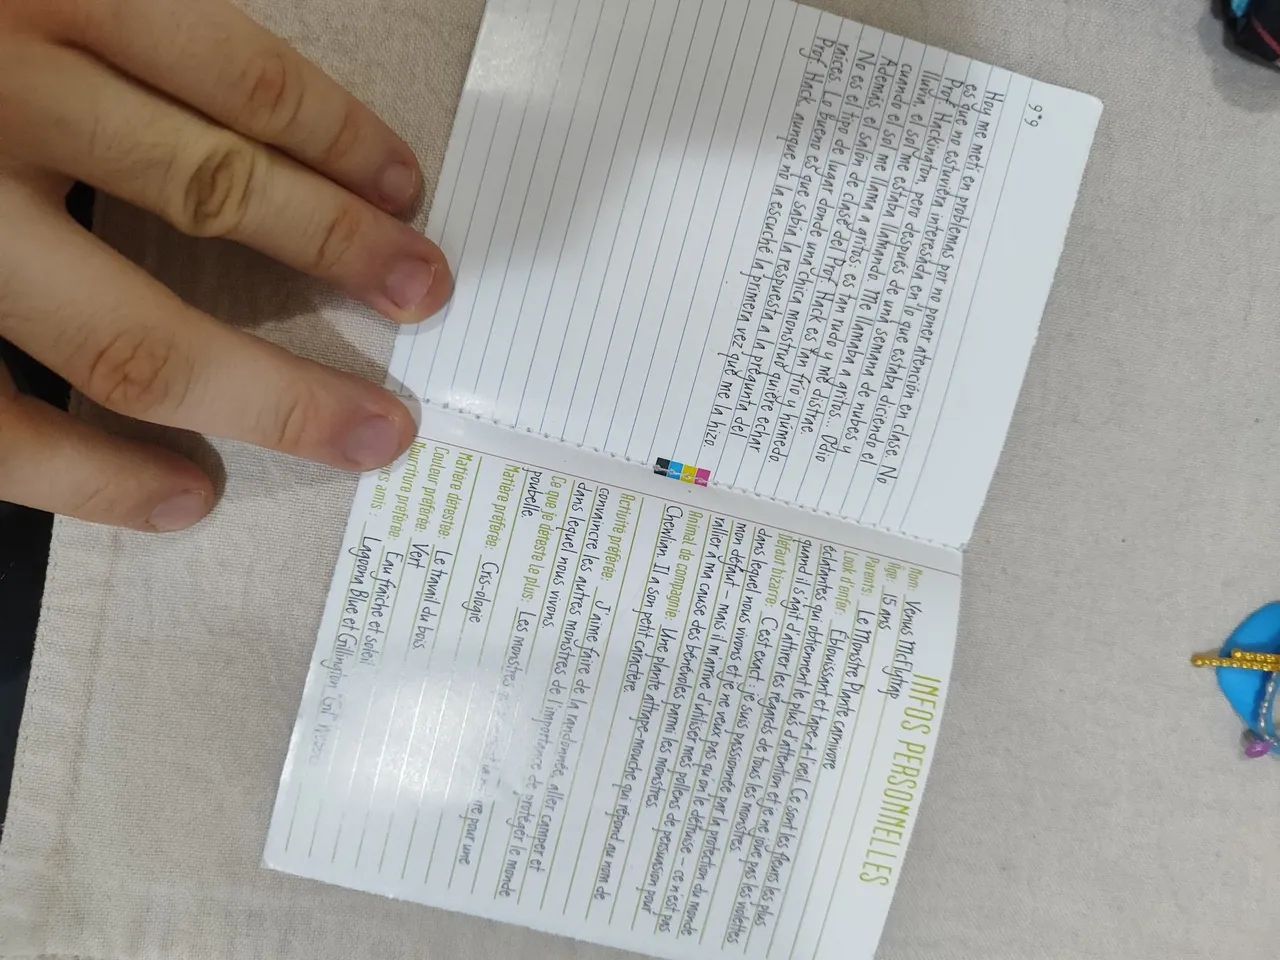 9*9
Hoy me metí en problemas por no poner atención en clase. No
es que no estuviera interesada en lo que estaba diciendo el
Prof. Hackington, pero después de una semana de nubes y
lluvia, el sol me estaba llamando. Me llamaba a gritos... Odio
cuando el sol me llama a gritos: es tan rudo y me distrae.
Además, el salón de clase del Prof. Hack es tan frío y húmedo.
No es el tipo de lugar donde una chica monstruo quiere echar
raíces. Lo bueno es que sabía la respuesta a la pregunta del
Prof. Hack, aunque no la escuché la primera vez que me la hizo.
INFOS PERSONNELLES
Nom: Venus McFlytrap
Âge: 15 ans
Parents: Le Monstre Plante carnivore
Look d'enfer: Éblouissant et tape-à-l'oeil. Ce sont les fleurs les plus
éclatantes qui obtiennent le plus d'attention et je ne joue pas les violettes
quand il s'agit d'attirer les regards de tous les monstres.
Défaut bizarre: C'est exact : je suis passionnée par la protection du monde
dans lequel nous vivons et je ne veux pas qu'on le détruise – ce n'est pas
mon défaut – mais il m'arrive d'utiliser mes pollens de persuasion pour
rallier à ma cause des bénévoles parmi les monstres.
Animal de compagnie: Une plante attrape-mouche qui répond au nom de
Chewlian. Il a son petit caractère.
Activité préférée: J'aime faire de la randonnée, aller camper et
convaincre les autres monstres de l'importance de protéger le monde
dans lequel nous vivons
Ce que je déteste le plus: Les monstres pour une
poubelle
Matière préférée: Crisiologie
Matière détestée: Le travail du bois
Couleur préférée: Vert
Nourriture préférée: Eau fraîche et soleil
amis : Lagoona Blue et Gillington "Gil"